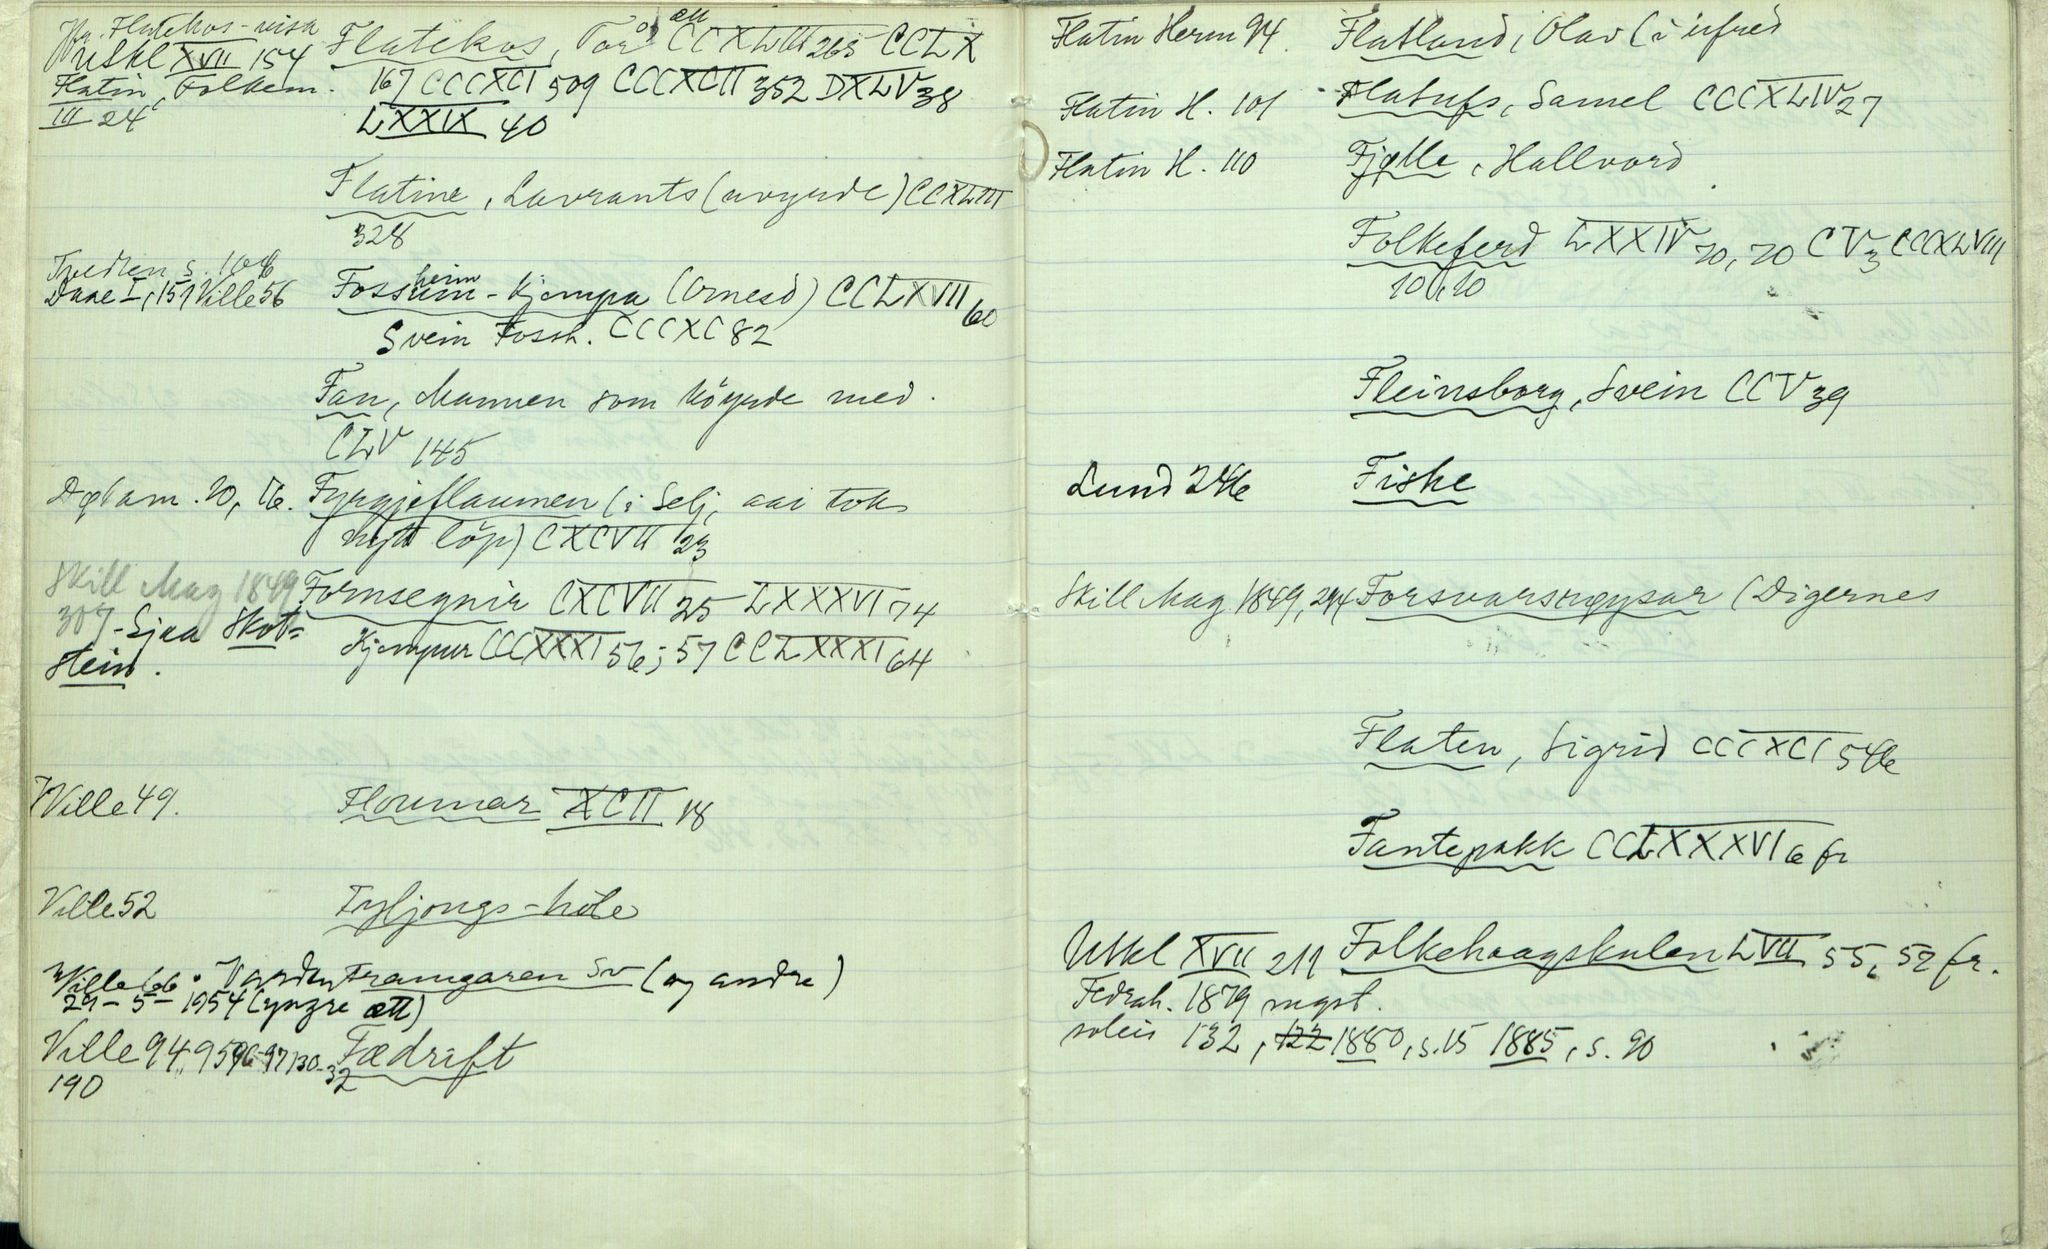 Flatekos-visa
Utkl XVII 154 Flatekos, Tor ått CCXLIII 265 CCLX
Flatin, Folkem. 167 CCCXCI 509 CCCXCII 352 DXLV 38
III 24 LXXIX 40
Flatine, Lavrants (uvyrde) CCXLIII
328
Tvedten s. 106
Daae I, 151 Ville 56 Fossum heim - kjempa (Ornesd) CCLXVII 60
Svein Fossh. CCCXC 82
Fan, Mannen som köyrde med.
CLV 145
Fyrgjeflaumen (i Selj, aai tok
nytt löp) CXCVII 23
Skill Mag 1849 Fornsegnir CXCVII 25 LXXXVI 74
307 - Sjaa Skot= Kjempur CCCXXXI 56; 57 CCLXXXI 64
stein.
Ville 49. Floumar XCII 18
Ville 52 Fyljongs-hole
Ville 66. Varden Framgaren Sv (og andre)
29-5-1954 (yngre ætt)
Ville 94, 95, 96-97, 130-32 Fædrift
190
Flatin Herm 94. Flatland, Olav (i ufred
Flatin H. 101 Flatufs, Samel CCCXLIV 27
Flatin H. 110 Fjølle, Hallvord
Folkeferd LXXIV 70, 70 CV 3 CCCXLVIII
10, 10
Fleinsborg, Svein CCV 39
Lund 246 Fiske
Skill Mag 1849, 294 Forsvarsrøysar (Digernes
Flaten, Sigrid CCCXCI 546
Fantepakk CCLXXXVI 6 fr
Utkl XVII 211 Folkehøgskulen LVII 55, 52 fr.
Fedrah. 1879 mgst.
soleis 132, 122 1880, s. 15 1885, s. 90